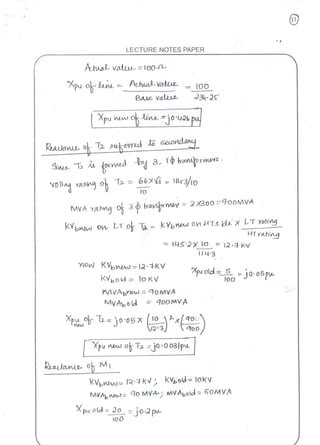 11
LECTURE NOTES PAPER
Actual value = 100 Ω
Xpu of line = Actual value / Base value = 100 / 234.25
Xpu new of line = j0.426 pu
Reactance of T2 referred to secondary
Since T2 is formed by 3, 1φ transformers.
Voltage rating of T2 = 66×√3 / 10 = 114.3/10
MVA rating of 3φ transformer = 3×300 = 900MVA
kVbnew on LT of T2 = kVbnew on HTs de x LT rating / HT rating
= 145.2 x 10 / 114.3 = 12.7 kV
now KVbnew = 12.7KV
Xpu old = 5 / 100 = j0.05pu
KVbold = 10 KV
MVAbnew = 90MVA
MVAbold = 900MVA
Xpu new of T2 = j0.05 x (10 / 12.7)² x (90 / 900)
Xpu new of T2 = j0.0031pu
Reactance of M1
KVbnew = 12.7 KV ; KVbold = 10KV
MVAbnew = 90 MVA ; MVAbold = 50MVA
Xpu old = 20 / 100 = j0.2pu